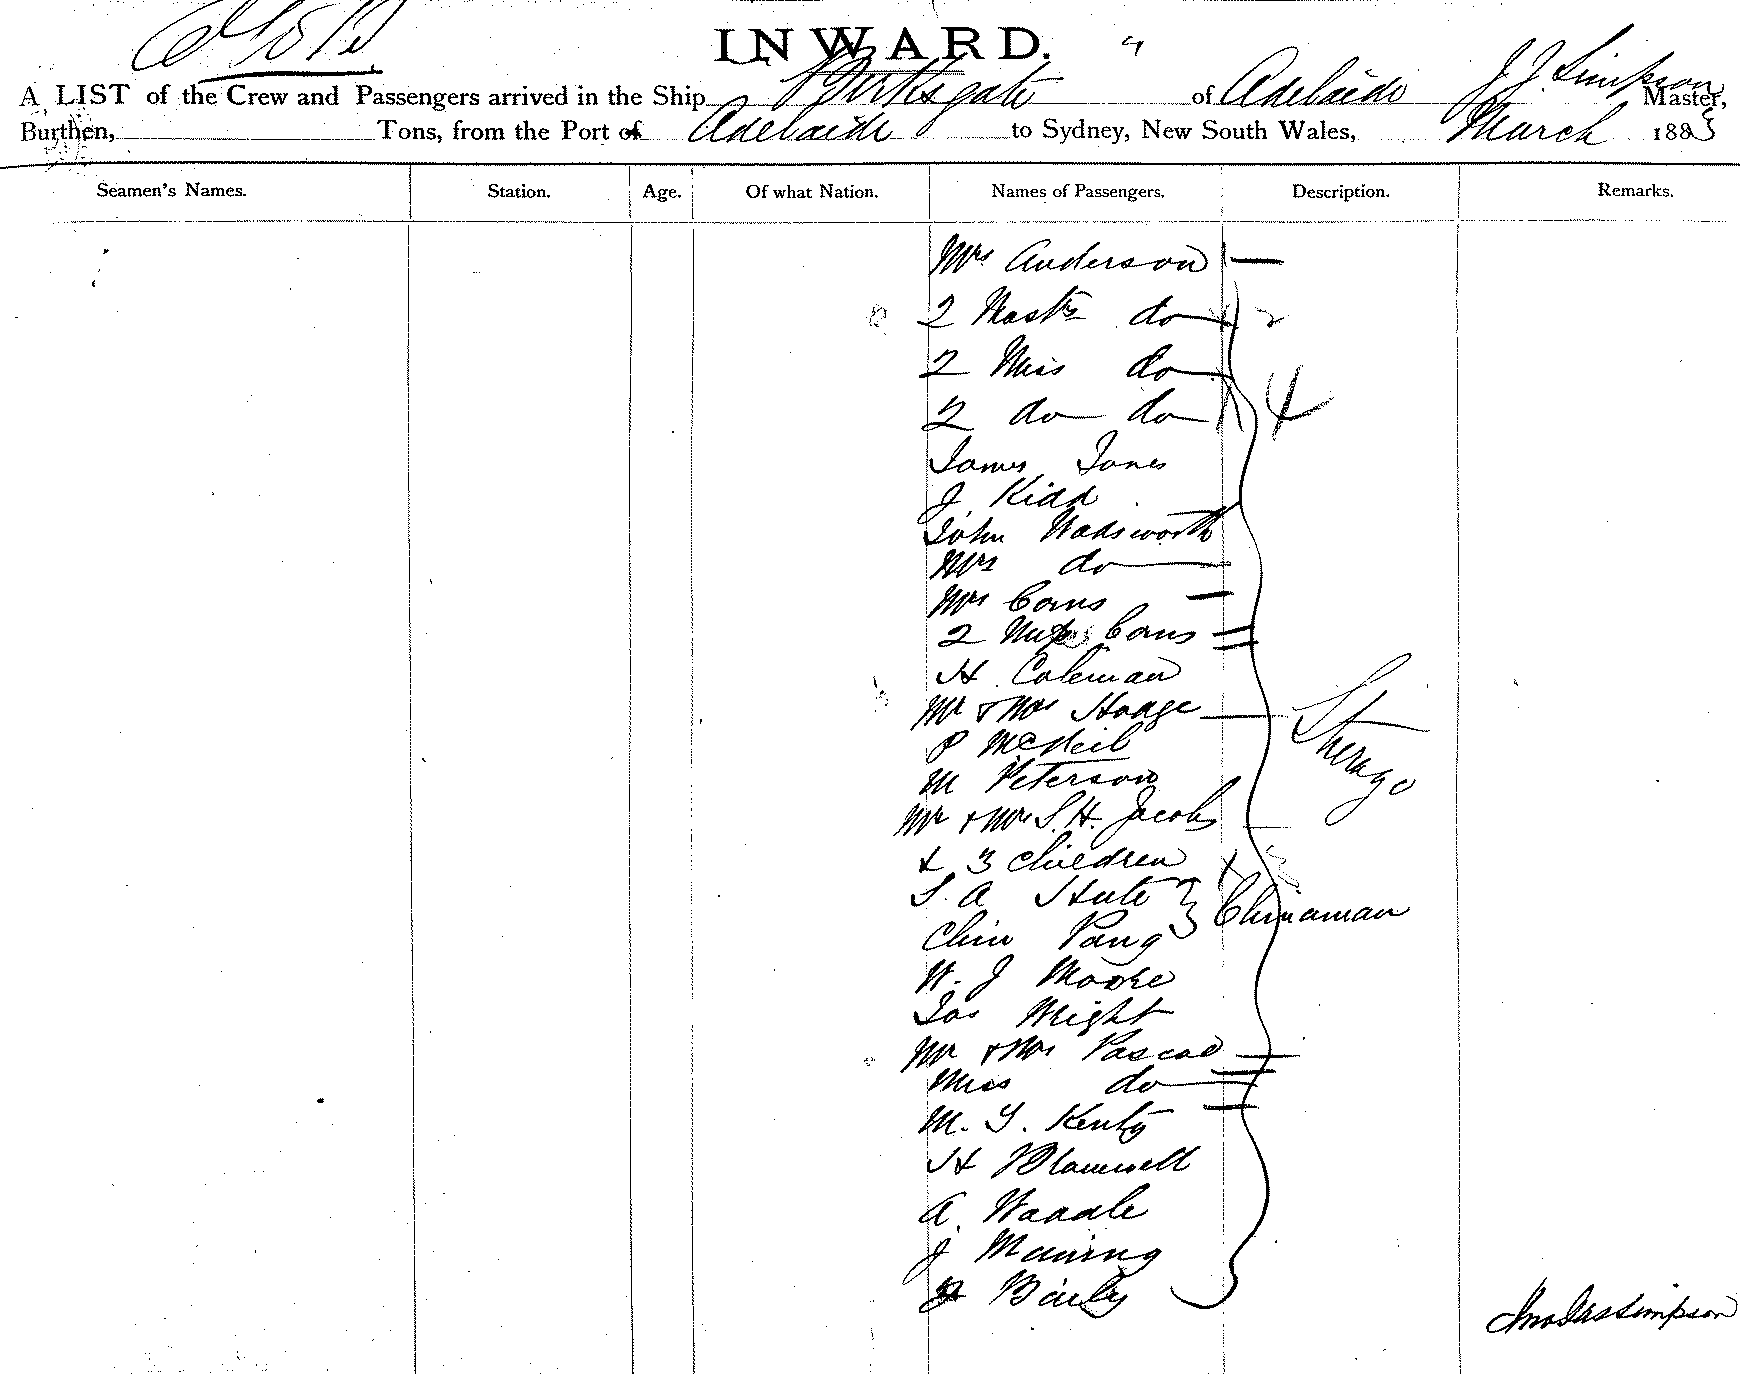 INWARD.
A LIST of the Crew and Passengers arrived in the Ship Birksgate of Adelaide J. J. Simpson Master,
Burthen, Tons, from the Port of Adelaide to Sydney, New South Wales, March 1883
Seamen's Names. Station. Age. Of what Nation. Names of Passengers. Description. Remarks.
Mrs Anderson
2 Mastrs do 2
2 Miss do
2 do do 4
James Jones
J Kidd
John Wadsworth
Mrs do
Mrs Cans
2 Cans
H. Coleman
Mr & Mrs Hodge
P McNeil
M Peterson
Mr & Mrs S. H. Jacobs
& 3 children
S. A
Chin Pang Chinaman
W. J Moore
Jas Wright
Mr & Mrs Pascoe
Miss do
M. Y.
H Blamwell
A. Waddle
J
Baily
Steerage
Jno Jas Simpson